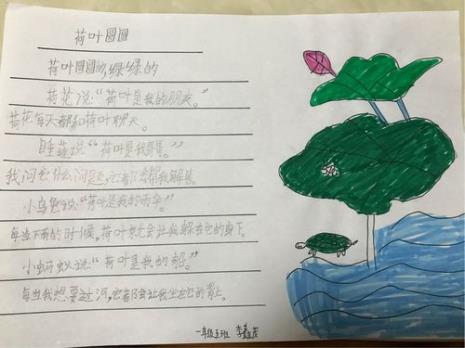 荷叶圆圆
荷叶圆圆的,绿绿的
荷花说:“荷叶是我的朋友。”
荷花每天都和荷叶聊天。
睡莲说:“荷叶是我
我问它什么问题,它都会帮我解答。
小乌龟说:“荷叶是我的雨伞。”
每当下雨的时候,荷叶就会让我躲在它的身下。
小蚂蚁说:“荷叶是我的船。”
每当我想要过河,它都会让我坐在它的背上。
一年级五班